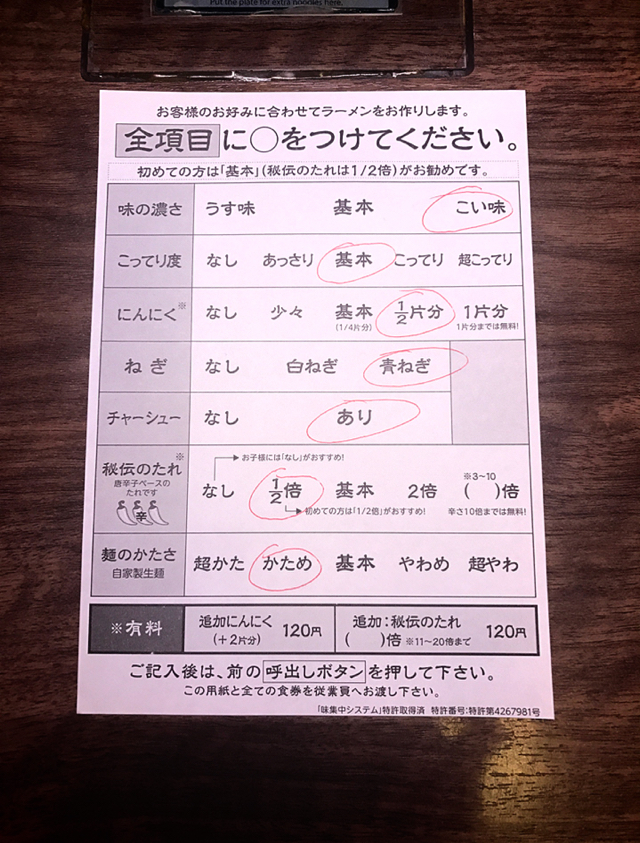 Put the plate for extra noodles here.
お客様のお好みに合わせてラーメンをお作りします。
全項目に○をつけてください。
初めての方は「基本」(秘伝のたれは1/2倍)がお勧めです。
味の濃さ うす味 基本 こい味
こってり度 なし あっさり 基本 こってり 超こってり
にんにく※ なし 少々 基本 1/2片分 1片分
(1/4片分) 1片分までは無料!
ねぎ なし 白ねぎ 青ねぎ
チャーシュー なし あり
お子様には「なし」がおすすめ!
秘伝のたれ※
唐辛子ベースの
たれです
辛
なし 1/2倍 基本 2倍 ※3~10 ( )倍
初めての方は「1/2倍」がおすすめ! 辛さ10倍までは無料!
麺のかたさ 超かた かため 基本 やわめ 超やわ
自家製生麺
※有料 追加にんにく (+2片分) 120円 追加:秘伝のたれ ( )倍 ※11~20倍まで 120円
ご記入後は、前の呼出しボタンを押して下さい。
この用紙と全ての食券を従業員へお渡し下さい。
「味集中システム」特許取得済 特許番号:特許第4267981号